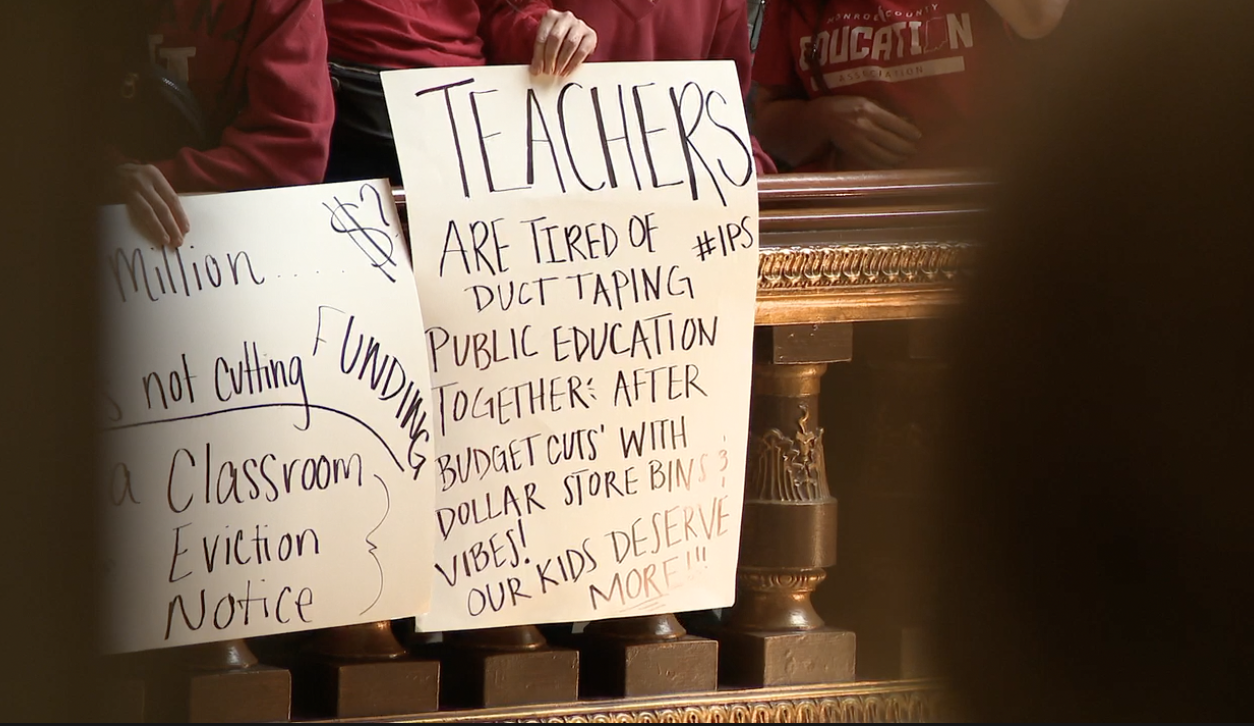 MONROE COUNTY
EDUCATION
ASSOCIATION
TEACHERS
ARE TIRED OF
#IPS
DUCT TAPING
PUBLIC EDUCATION
TOGETHER: AFTER
BUDGET CUTS' WITH
DOLLAR STORE BINS &
VIBES!
OUR KIDS DESERVE
MORE!!!
Million..... $?
not cutting
FUNDING
a Classroom
Eviction
Notice